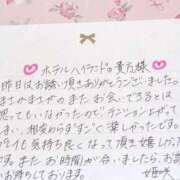 ホテルハイランドの貴方様
昨日はお誘い頂きありがとうございました。
まさかまさかの またお会いできるとは
思ってもいなかったのでテンション上がって
しまい、相変わらずすごく楽しかったです。
今も気持ち良くなって頂き嬉しいた
また お時間が合いましたら、お話
お待ちしております。